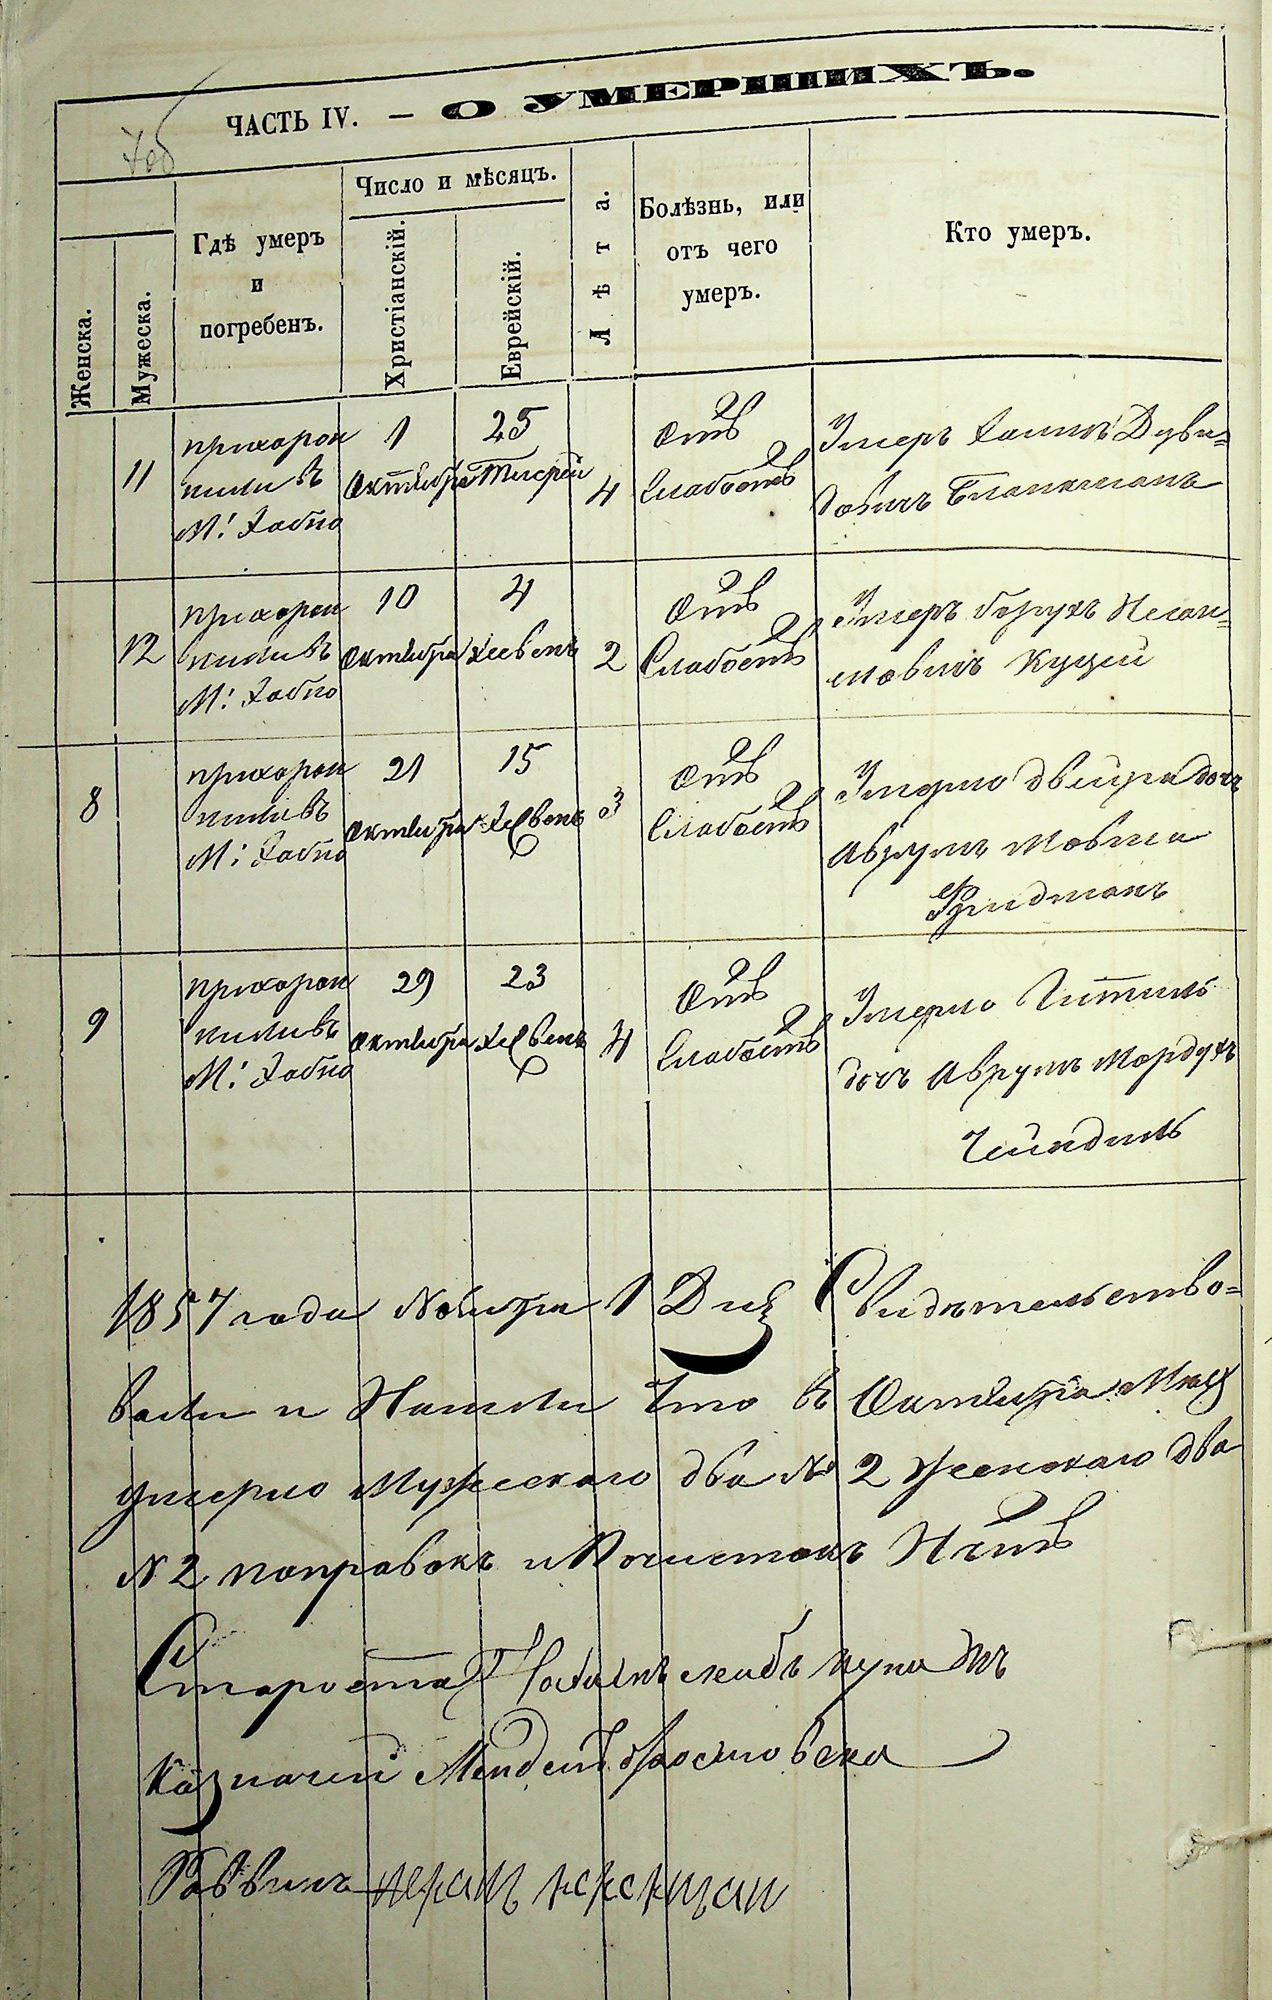 ЧАСТЬ IV. — О УМЕРШИХЪ.
Женска.
Мужеска.
Гдѣ умеръ
и
погребенъ.
Число и мѣсяцъ.
Христіанскій.
Еврейскій.
Лѣта.
Болѣзнь, или
отъ чего
умеръ.
Кто умеръ.
11
прихорон
нили въ
М: Хабно
1
Октября
25
Тисрей
4
Отъ
Слабость
Умеръ Хаимъ Дуви=
довичъ
12
прихорон
нили въ
М: Хабно
10
Октября
4
Хесвень
2
Отъ
Слабость
Умеръ Борухъ
8
прихорон
нили въ
М: Хабно
21
Октября
15
Хесвень
3
Отъ
Слабость
Умерло Двейра дочъ
Аврумъ Мовша
Фридманъ
9
прихорон
нили въ
М: Хабно
29
Октября
23
Хесвень
4
Отъ
Слабость
Умерло
дочъ Аврумъ Мордухъ
1857 года Ноября 1 Дня Свидѣтельство=
вали и Нашли Что въ Октября
умерло Мужескаго два № 2 Женскаго два
№ 2 поправокъ и Почистокъ Нѣтъ
Староста
Казначей Мендель
Раввинъ